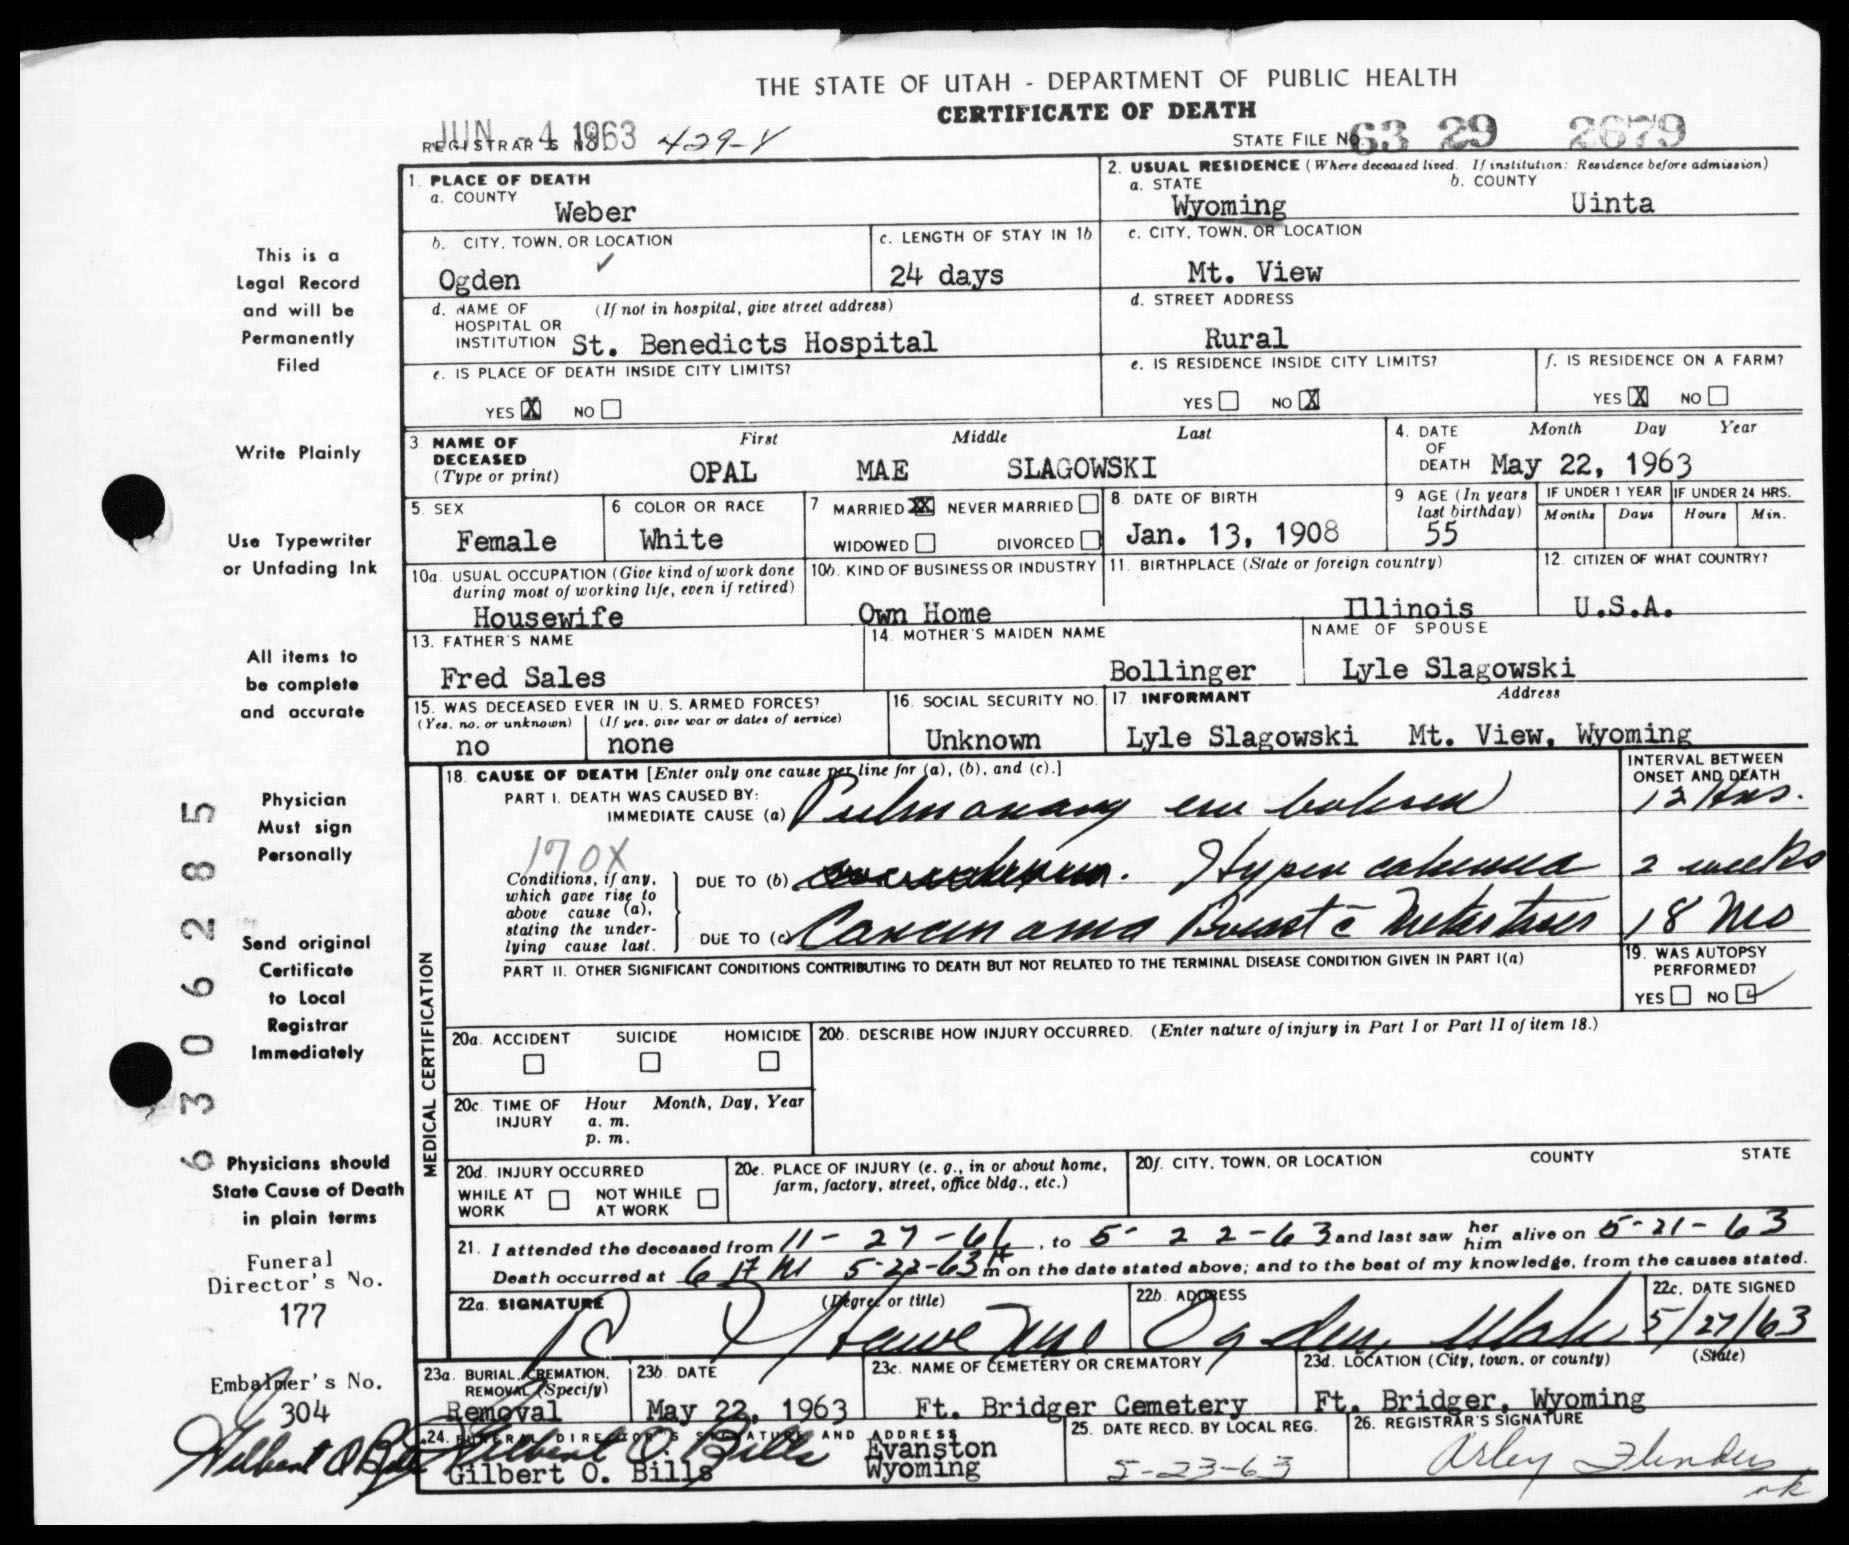 THE STATE OF UTAH - DEPARTMENT OF PUBLIC HEALTH
CERTIFICATE OF DEATH
JUN -4 1963
REGISTRAR'S NO. 429-Y
STATE FILE NO. 63 29 2679
1. PLACE OF DEATH
a. COUNTY
Weber
2. USUAL RESIDENCE (Where deceased lived. If institution: Residence before admission)
a. STATE b. COUNTY
Wyoming Uinta
b. CITY, TOWN, OR LOCATION
Ogden
c. LENGTH OF STAY IN 1b
24 days
c. CITY, TOWN, OR LOCATION
Mt. View
d. NAME OF (If not in hospital, give street address)
HOSPITAL OR
INSTITUTION St. Benedicts Hospital
d. STREET ADDRESS
Rural
e. IS PLACE OF DEATH INSIDE CITY LIMITS?
YES X NO
e. IS RESIDENCE INSIDE CITY LIMITS?
YES NO X
f. IS RESIDENCE ON A FARM?
YES X NO
3. NAME OF First Middle Last
DECEASED
(Type or print) OPAL MAE SLAGOWSKI
4. DATE Month Day Year
OF
DEATH May 22, 1963
5. SEX
Female
6 COLOR OR RACE
White
7 MARRIED XX NEVER MARRIED
WIDOWED DIVORCED
8. DATE OF BIRTH
Jan. 13, 1908
9 AGE (In years
last birthday)
55
IF UNDER 1 YEAR IF UNDER 24 HRS.
Months Days Hours Min.
10a. USUAL OCCUPATION (Give kind of work done
during most of working life, even if retired)
Housewife
10b. KIND OF BUSINESS OR INDUSTRY
Own Home
11. BIRTHPLACE (State or foreign country)
Illinois
12. CITIZEN OF WHAT COUNTRY?
U.S.A.
13. FATHER'S NAME
Fred Sales
14. MOTHER'S MAIDEN NAME
Bollinger
NAME OF SPOUSE
Lyle Slagowski
15. WAS DECEASED EVER IN U. S. ARMED FORCES?
(Yes, no, or unknown) (If yes, give war or dates of service)
no none
16. SOCIAL SECURITY NO.
Unknown
17. INFORMANT Address
Lyle Slagowski Mt. View, Wyoming
MEDICAL CERTIFICATION
18. CAUSE OF DEATH [Enter only one cause per line for (a), (b), and (c).]
INTERVAL BETWEEN
ONSET AND DEATH
PART I. DEATH WAS CAUSED BY:
IMMEDIATE CAUSE (a) Pulmonary embolism 12 Hrs.
170X
Conditions, if any,
which gave rise to
above cause (a),
stating the under-
lying cause last.
DUE TO (b) Hyper calcemia 2 weeks
DUE TO (c) Carcinoma Breast c̄ Metastases 18 Mo
PART II. OTHER SIGNIFICANT CONDITIONS CONTRIBUTING TO DEATH BUT NOT RELATED TO THE TERMINAL DISEASE CONDITION GIVEN IN PART I(a)
19. WAS AUTOPSY
PERFORMED?
YES NO ✓
20a. ACCIDENT SUICIDE HOMICIDE
20b. DESCRIBE HOW INJURY OCCURRED. (Enter nature of injury in Part I or Part II of item 18.)
20c. TIME OF Hour Month, Day, Year
INJURY a. m.
p. m.
20d. INJURY OCCURRED
WHILE AT NOT WHILE
WORK AT WORK
20e. PLACE OF INJURY (e. g., in or about home,
farm, factory, street, office bldg., etc.)
20f. CITY, TOWN, OR LOCATION COUNTY STATE
21. I attended the deceased from 11-27-61, to 5-22-63 and last saw her him alive on 5-21-63
Death occurred at 6 AM 5-22-63 m on the date stated above; and to the best of my knowledge, from the causes stated.
22a. SIGNATURE (Degree or title)
22b. ADDRESS
Ogden, Utah
22c. DATE SIGNED
5/27/63
23a. BURIAL, CREMATION,
REMOVAL (Specify)
Removal
23b. DATE
May 22, 1963
23c. NAME OF CEMETERY OR CREMATORY
Ft. Bridger Cemetery
23d. LOCATION (City, town, or county) (State)
Ft. Bridger, Wyoming
24. FUNERAL DIRECTOR'S SIGNATURE AND ADDRESS
Gilbert O. Bills
Gilbert O. Bills
Evanston
Wyoming
25. DATE RECD. BY LOCAL REG.
5-23-63
26. REGISTRAR'S SIGNATURE
This is a
Legal Record
and will be
Permanently
Filed
Write Plainly
Use Typewriter
or Unfading Ink
All items to
be complete
and accurate
Physician
Must sign
Personally
Send original
Certificate
to Local
Registrar
Immediately
Physicians should
State Cause of Death
in plain terms
Funeral
Director's No.
177
Embalmer's No.
304
Gilbert O Bills
6306285